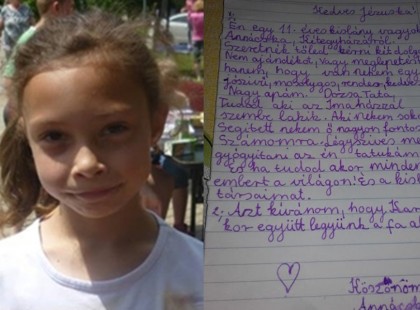 Kedves Jézuska!
1.
Én egy 11 éves kislány vagyok
Annácska, Kétegyházáról.
Szeretnék tőled kérni két dolg
Nem ajándékot, vagy meglepetést
hanem, hogy van nekem egy
jószívű, mosolygós, rendes, tudós
"Nagy apám." Dózsa Tata.
Tudod aki az Imaházzal
szembe lakik. Aki nekem sok
Segített nekem ő nagyon fontos
Számomra. Légyszíves me
gyógyítani az én tatukám
És ha tudod akor minden
embert a világon! És a kis
társaimat.
2. Azt kívánom, hogy Kar
kor együtt legyünk a fa al
Köszönöm
Annácsk